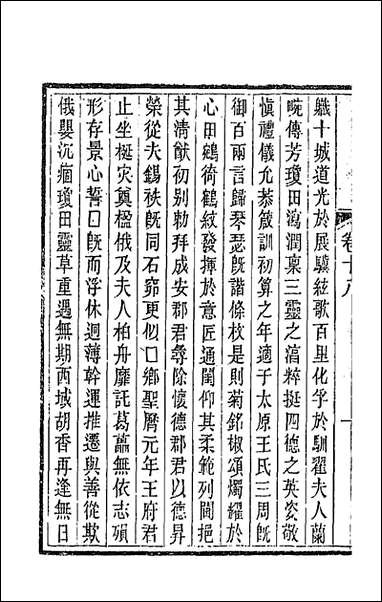 軄十城道光於展驥絃歌百里化孚於馴翟夫人蘭
畹傳芳瓊田瀉潤稟三靈之滈粹挺四德之英姿敬
愼禮儀允恭箴訓初筭之年適于太原王氏三周旣
御百兩言歸琴瑟旣諧條枚是則菊銘椒頌燭耀於
心田鶴綺鶴紋發揮於意匠通閨仰其柔範列閫挹
其淸猷初別勅拜成安郡君尋除懷德郡君以德昇
榮從夫錫袟旣同石窌更似□鄉聖曆元年王府君
止坐梃灾奠楹俄及夫人柏舟靡託葛藟無依志殞
形存景心誓□旣而浮休迥薄幹運推遷與善從欺
俄嬰沉痼瓊田靈草重遇無期西域胡香再逢無日
卷十八